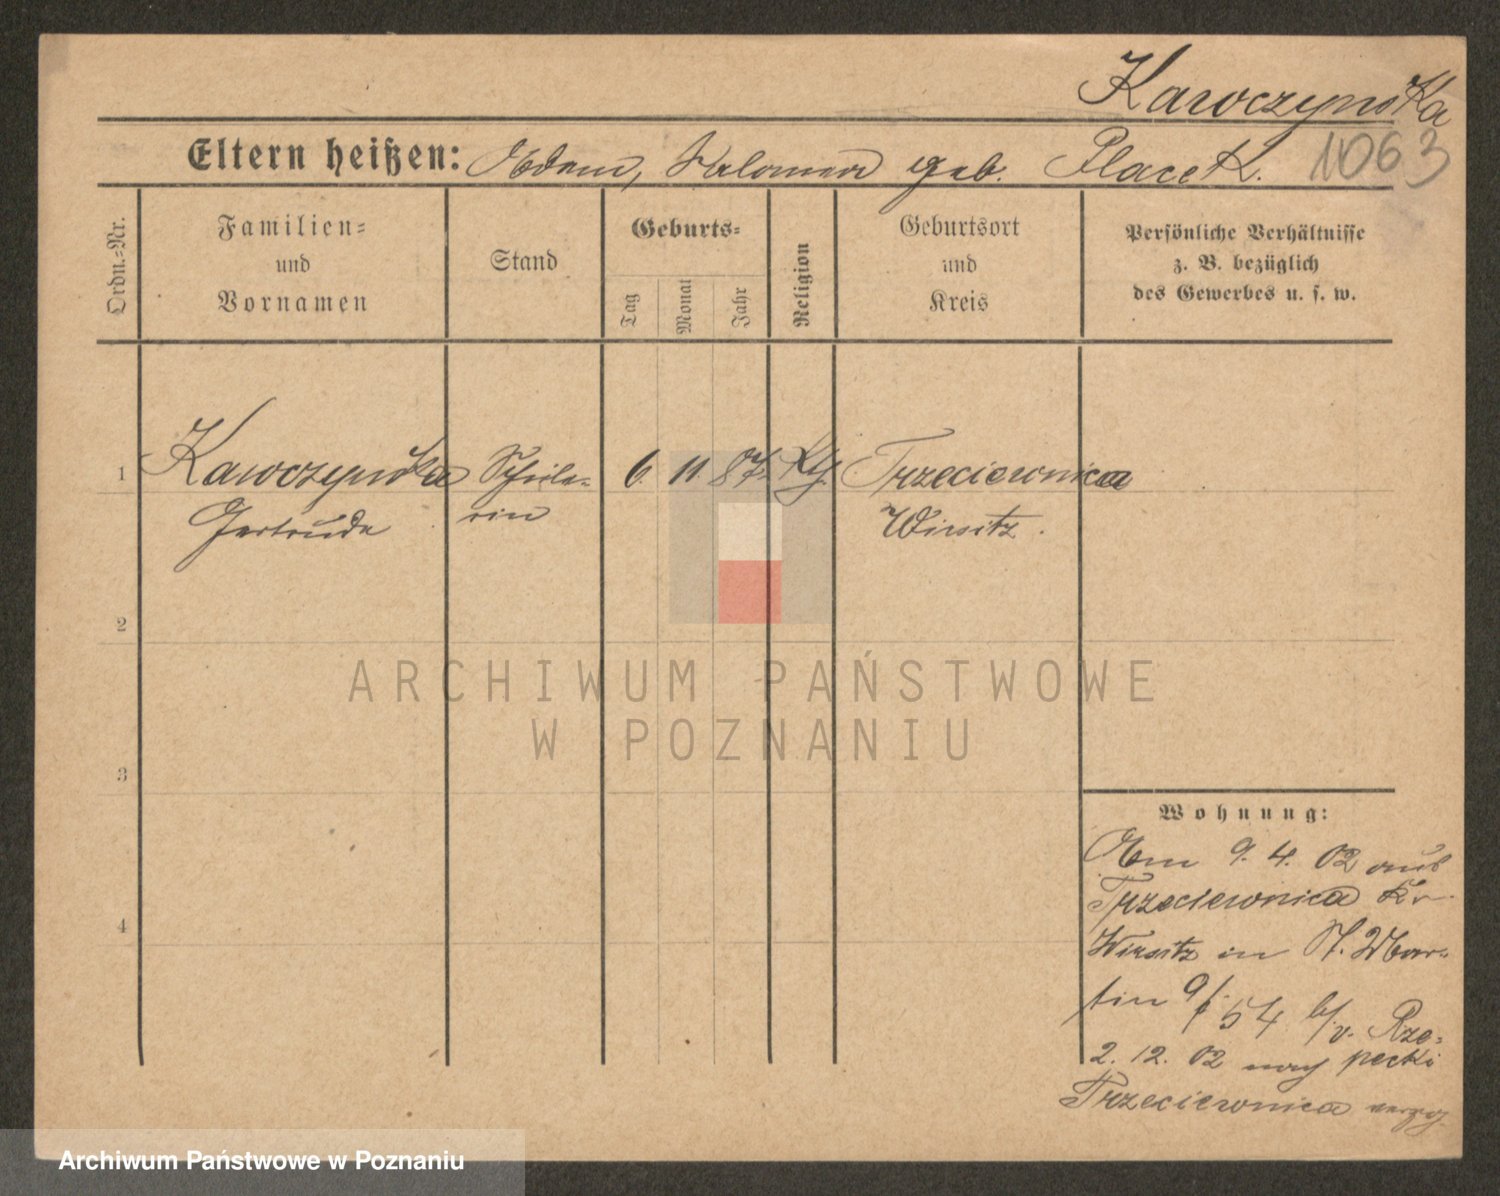 Kawczynska
Eltern heißen: Adam, Salomea geb. Placek.
1063
Ordn.=Nr.
Familien=
und
Vornamen
Stand
Geburts=
Tag
Monat
Jahr
Religion
Geburtsort
und
Kreis
Persönliche Verhältnisse
z. B. bezüglich
des Gewerbes u. s. w.
1 Kawczynska Schüle= 6. 11. 87. Kth. Trzeciewnica
Gertrude rin Wirsitz.
2
3
4
Wohnung:
Am 9. 4. 02 aus
Trzeciewnica Kr.
Wirsitz in St. Mar=
tin 54 b/v. Rze=
pecki
2. 12. 02 nach
Trzeciewnica
ARCHIWUM PAŃSTWOWE
W POZNANIU
Archiwum Państwowe w Poznaniu